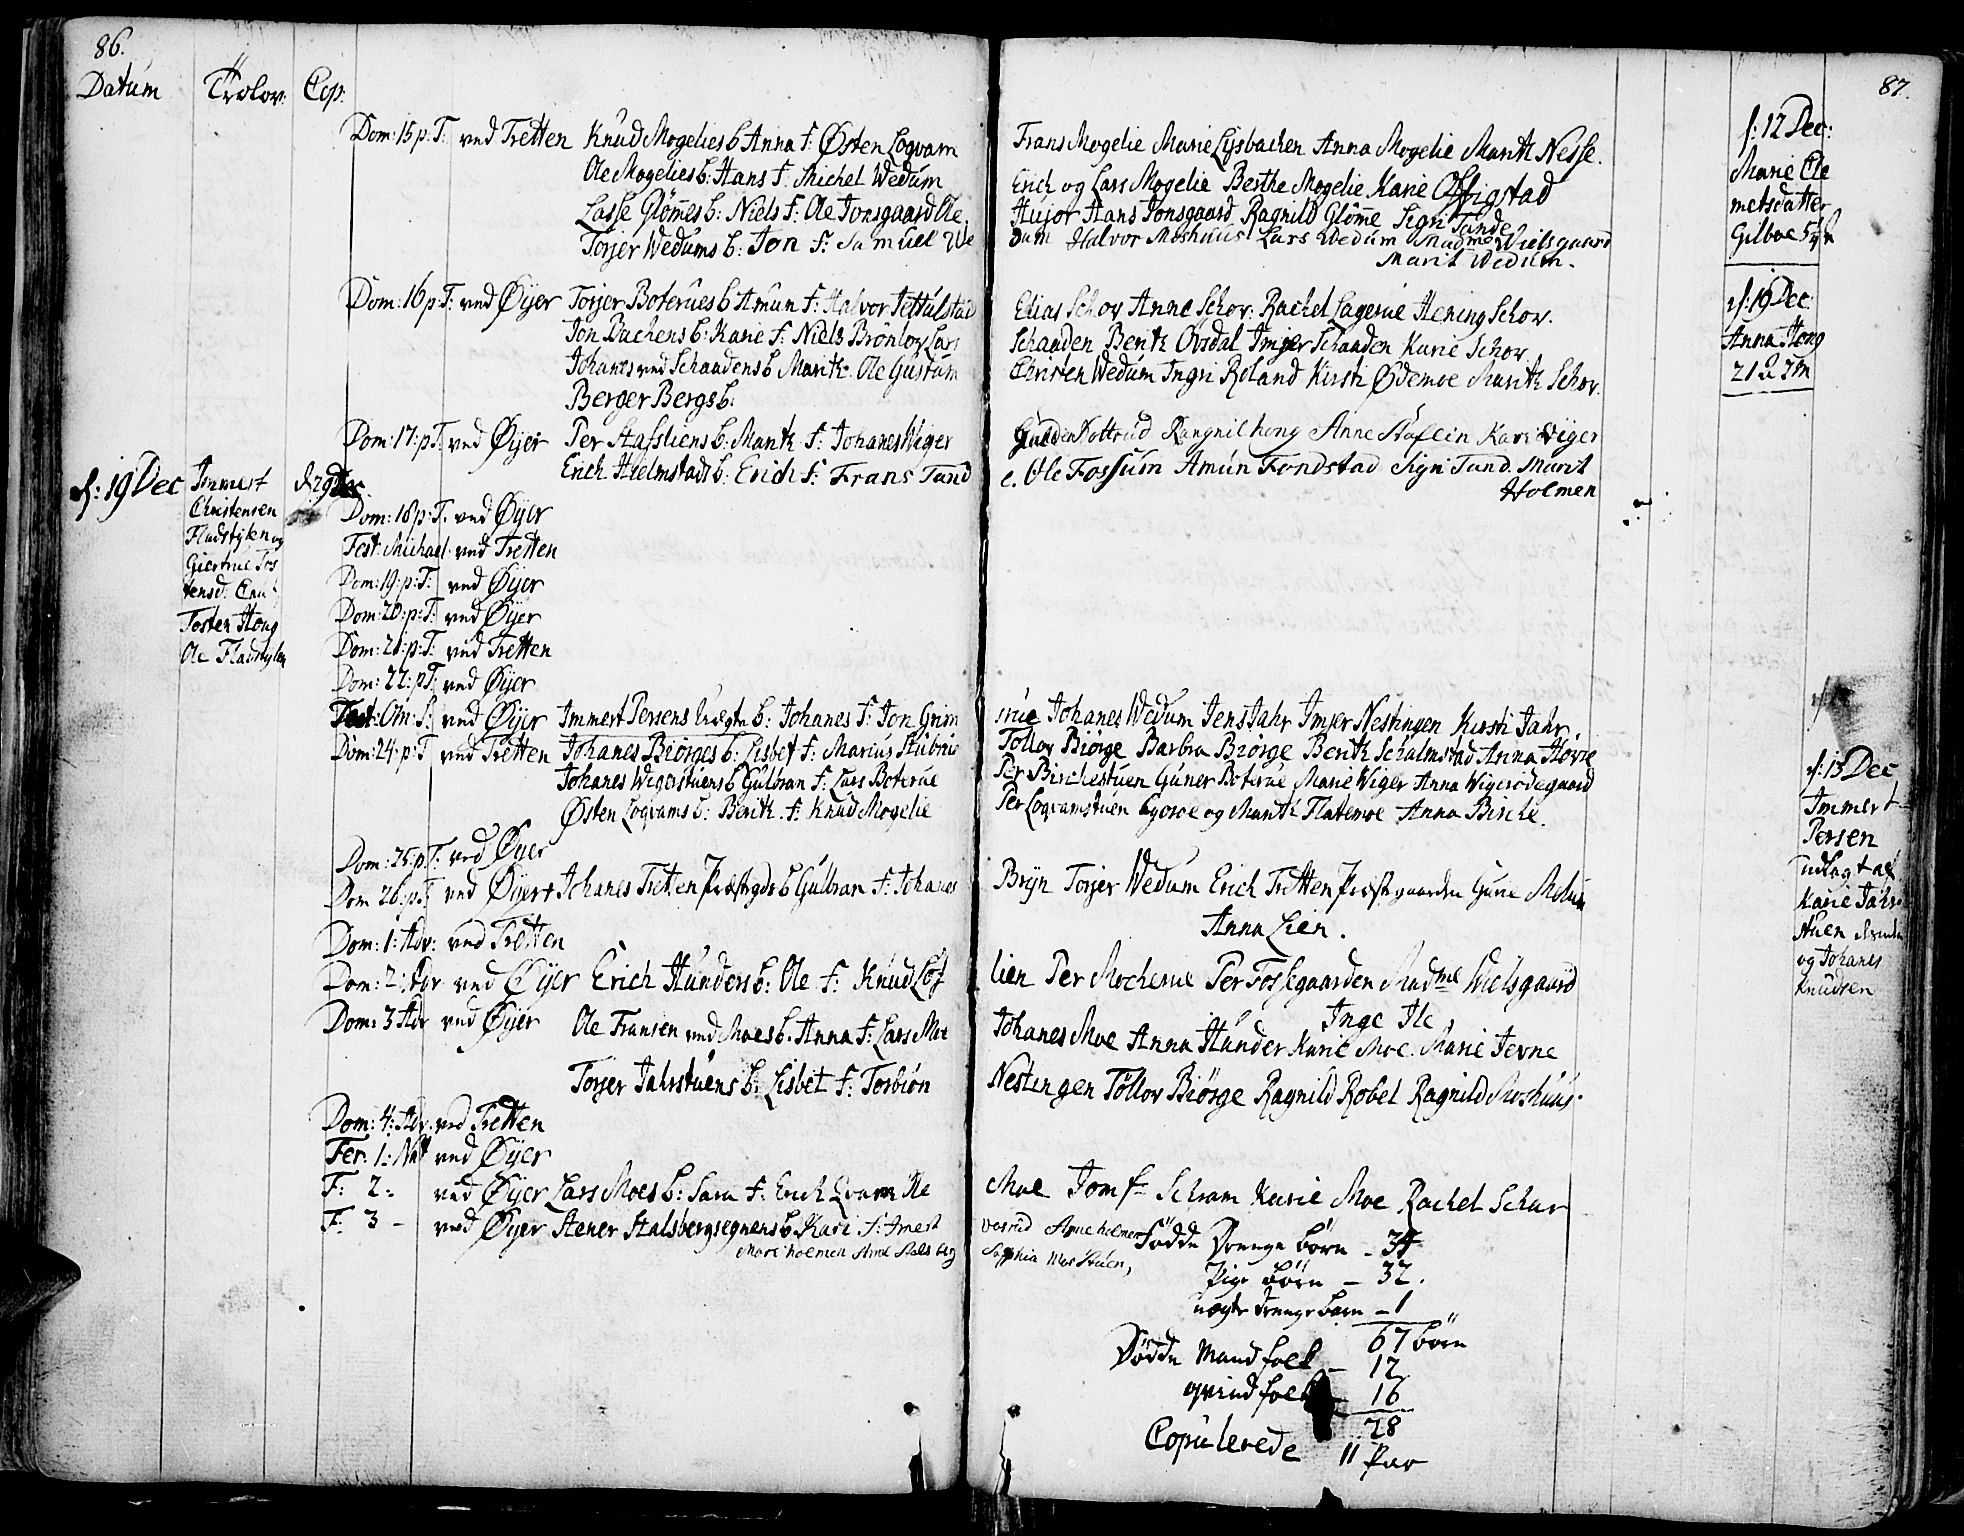 86.
Datum Trolov: Cop:
Dom: 15 p: T: ved Tretten Knud Mogelies b Anna F: Østen Loqvam
Ole Mogelies b: Hans F: Michel Wedum
Lasse Glömes b: Niels F: Ole Jonsgaard Ole
Torjer Wedums b: Jon F: Samuel We
Dom: 16 p: T: ved Øijer Torjer Boterues b Amun F: Halvor Jettulstad
Jon Bachens b: Karie F: Niels Brönlov Lars
Johanes ved Schaadens b Marit: Ole Gustum
Berger Bergs b:
Dom: 17: p T: ved Øijer Per Stafsliens b: Marit F: Johanes Wiger
Erich Hielmstads b: Erich F: Frans Tand
d: 19 Dec Immert
Christensen
Fladstylen og
Giertrue Tos
tensd:
Tosten Hong
Ole Fladstylen
Dom: 18 p: T: ved Øijer
Fest: Michael ved Tretten
Dom: 19: p: T: ved Øijer
Dom: 20: p: T: ved Øijer
Dom: 21: p: T: ved Tretten
Dom: 22: p T: ved Øijer
Fest: Om: S: ved Øijer Immert Persens Uægte b: Johanes F: Jon Grim
Dom: 24: p: T ved Tretten Johanes Biörges b: Lisbet F: Marius Stubrue
Johanes Wigerstuens b Gulbran F: Lars Boterue
Østen Loqvams b: Berit F: Knud Mogelie
Dom: 25: p T: ved Øijer
Dom 26: p T: ved Øijer Johanes Tretten Præstgds b Gulbran F: Johanes
Dom: 1: Adv: ved Tretten
Dom: 2: Adv ved Øijer Erich Hunders b: Ole F: Knud Lös
Dom: 3 Adv ved Øijer Ole Fransen ved Moes b. Anna F: Lars Moe
Torjer Jahrstuens b: Lisbet F: Torbiön
Dom: 4: Adv. ved Tretten
Fer: 1: Nat ved Øijer
F: 2: ved Øijer Lars Moes b: Sara F: Erich Qvam Ole
F: 3 - ved Øijer Stener Stalsbergsegnens b. Kari F: Imert
Mari Holmen Arne Stalsberg
87.
Frans Mogelie Marie Lysbachen Anna Mogelie Marit Nesse.
Erich og Lars Mogelie Berthe Mogelie Karie Offigstad
Hujor Hans Jonsgaard Ragnild Glöme Sigri Tande
dum Halvor Moshuus Lars Wedum Madme Wielsgaard
Marit Wedum.
Elias Schov Anne Schov: Rachel Lagerue Hening Schov.
Schaaden Berit Ovsdal Imjer Schaaden Karie Schov
Christen Wedum Ingri Roland Kirsti Ødemoe Marit Schov.
Gulden Tottrud Rangnil hong Anne Staflein Kari Wiger
e. Ole Fossum Amun Fondstad Sigri Tand. Marit
Holmen
rue Johanes Wedum Jens Jahr Imjer Nestingen Kirsti Jahr.
Töllov Biörge Barbra Biörge Berit Schalmstad Anna Hovie
Per Birchestuen Guner Boterue Marie Wiger Anna Wigerödegaard
Per Loqvamstuen og Marit Flatemoe Anna Birche.
Bryn Torjer Wedum Erich Tretten Præstgaarden Gurie Molun
Anna Lien.
lien Per Mocherue Per Fossegaarden Madme Wielsgaard
Inge Ile
Johanes Moe Anna Hunder Karie Moe. Marie Jevne
Nestingen Töllov Biörge Ragnild Robel Ragnild Moshuus.
Moe Jomf Schram Karie Moe Rachel Schar
Anne holmen
Sophia Moe Stuen,
Födde Drenge börn - 34
Pige börn - 32.
uægte drenge barn - 1
67 börn
Dödde Mandfolk - 12
qvindfolk 16
28
Copulerede 11 Par
d: 12 Dec:
Marie Cle
metsdatter
Gilboe
d: 19 Dec:
Anna Hong
d: 13 Dec
Immert
Persen
udlagt af
Karie Jahr
stuen
og Johanes
Knudsen